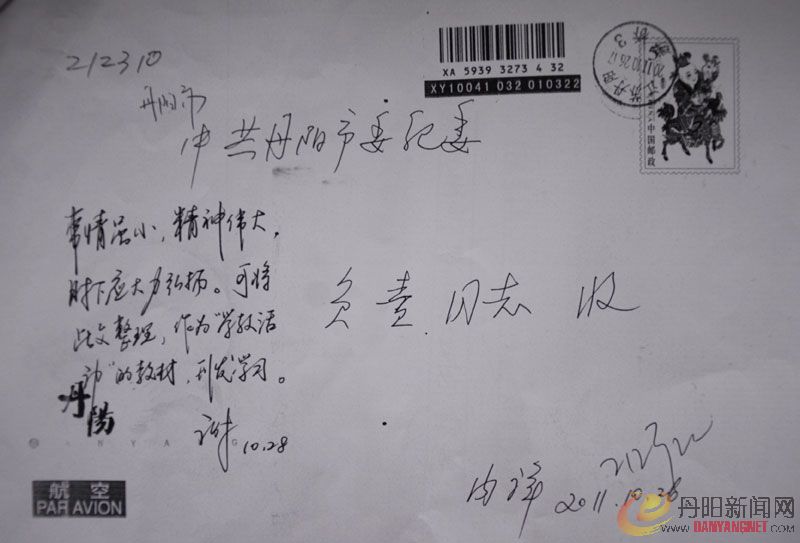 212310
丹阳市
中共丹阳市委纪委
XA 5939 3273 4 32
XY10041 032 010322
2011.10.26.17
中国邮政
事情虽小，精神伟大，
时下应大力弘扬。可将
此文整理，作为“学教活
动”的教材，刊发学习。
10.28
负责同志 收
丹陽
航空
PAR AVION
内详
2011.10.26
丹阳新闻网
WWW.DANYANGNET.COM